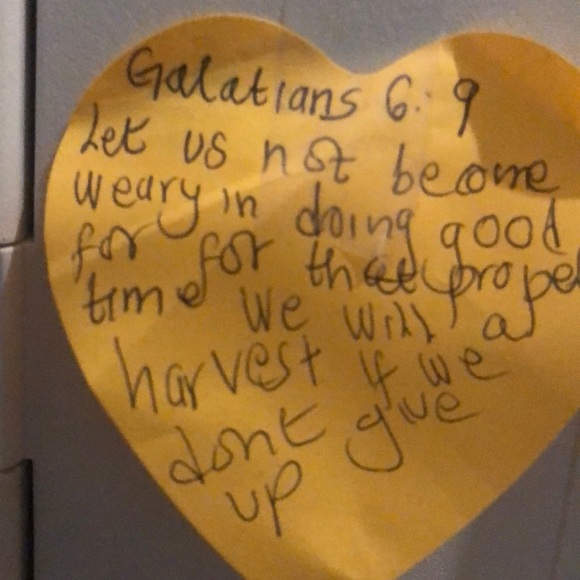 Galatians 6:9
Let us not become
weary in doing good
for for that proper
time we will a
harvest if we
dont give
up